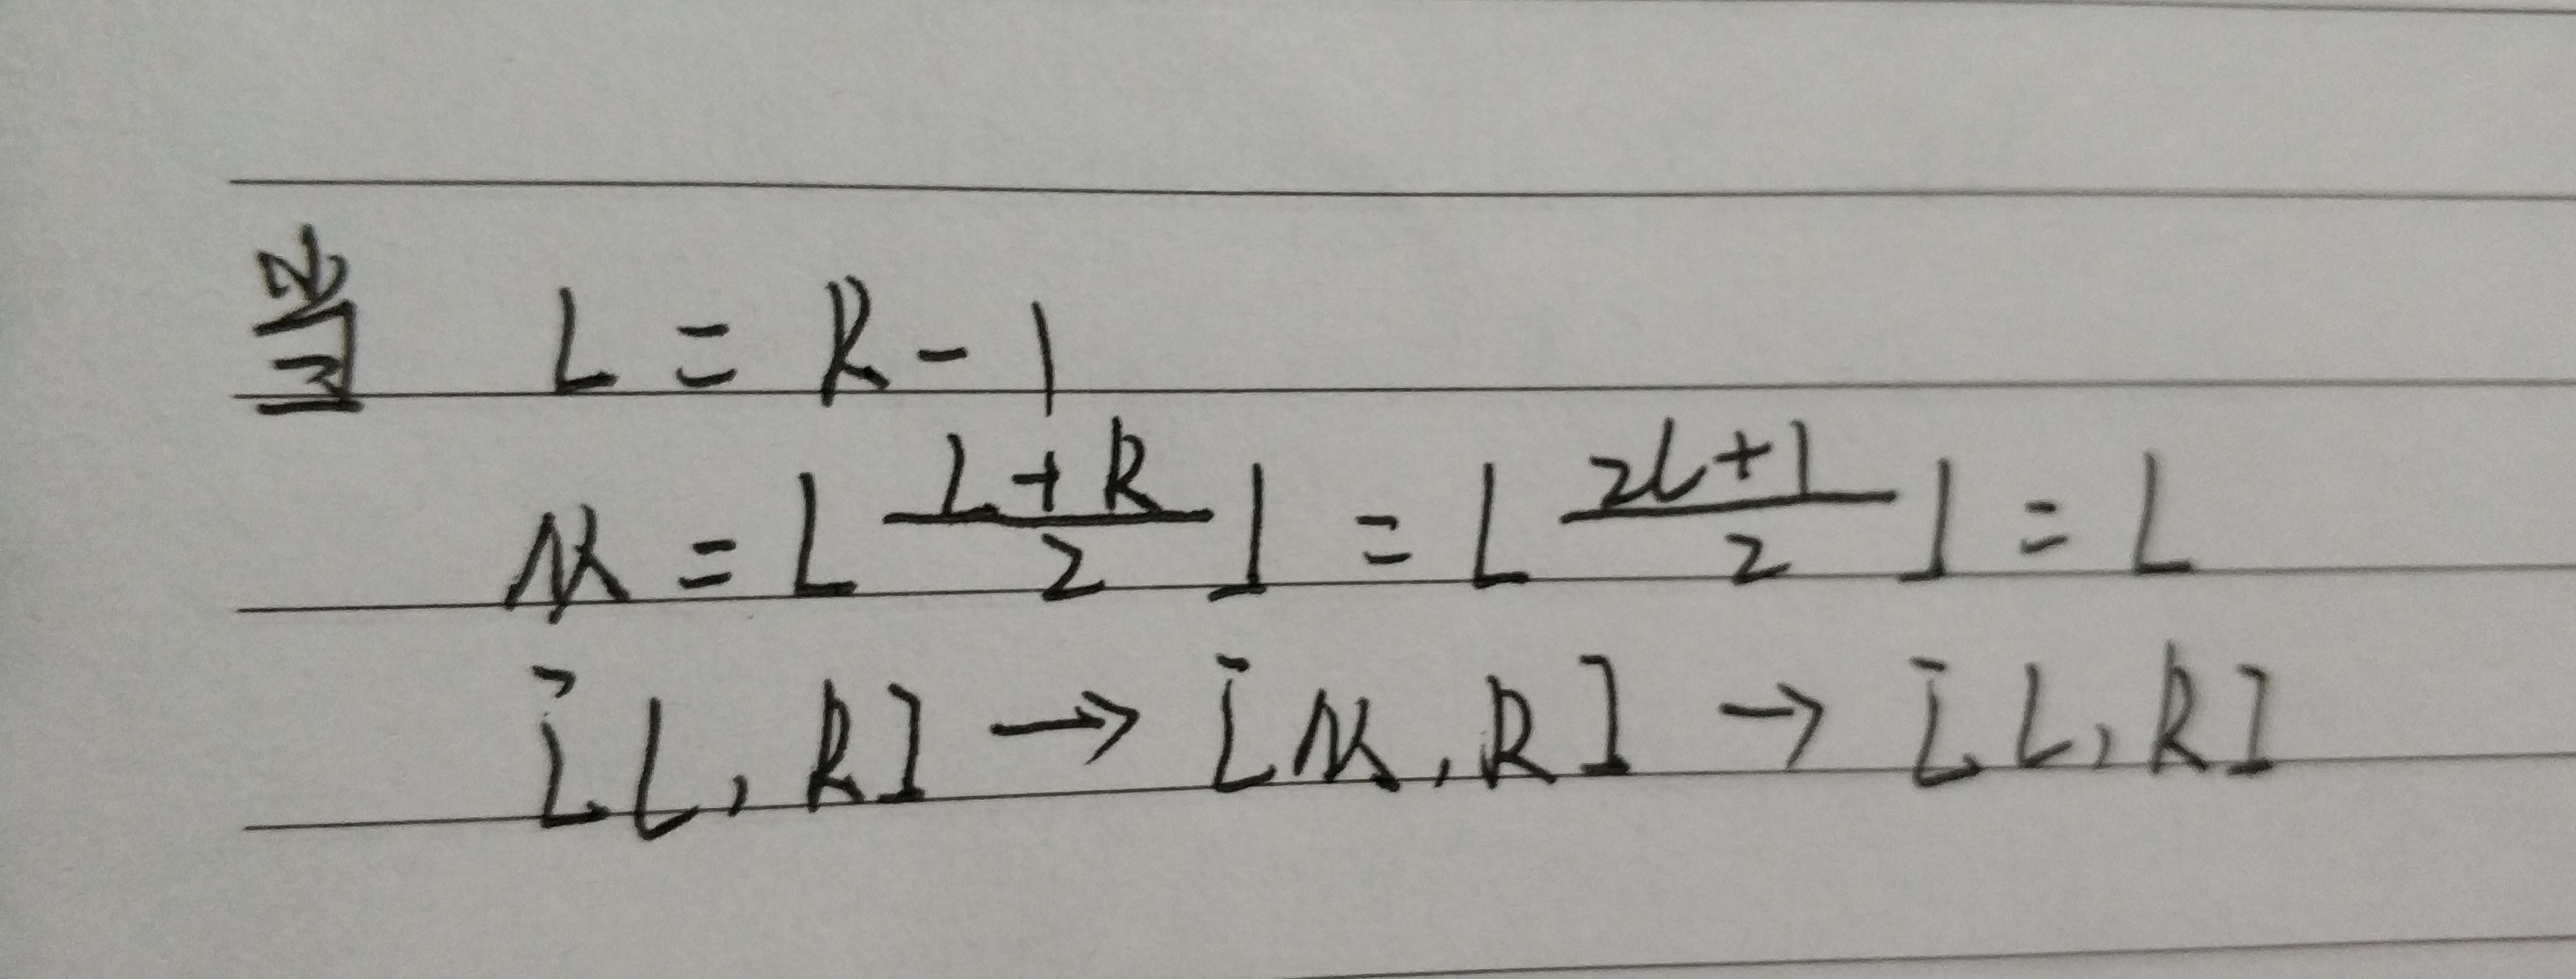 当 L = R - 1
M = ⌊ (L+R)/2 ⌋ = ⌊ (2L+1)/2 ⌋ = L
[L, R] → [M, R] → [L, R]